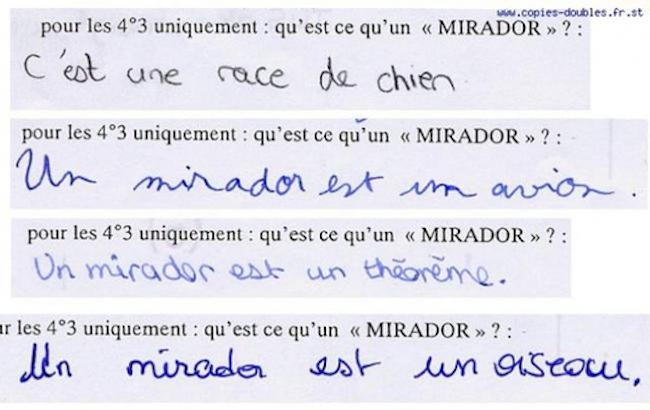 www.copies-doubles.fr.st
pour les 4°3 uniquement : qu'est ce qu'un « MIRADOR » ? :
C'est une race de chien
pour les 4°3 uniquement : qu'est ce qu'un « MIRADOR » ? :
Un mirador est um avion.
pour les 4°3 uniquement : qu'est ce qu'un « MIRADOR » ? :
Un mirador est un théorème.
ur les 4°3 uniquement : qu'est ce qu'un « MIRADOR » ? :
Un mirador est un oiseau.